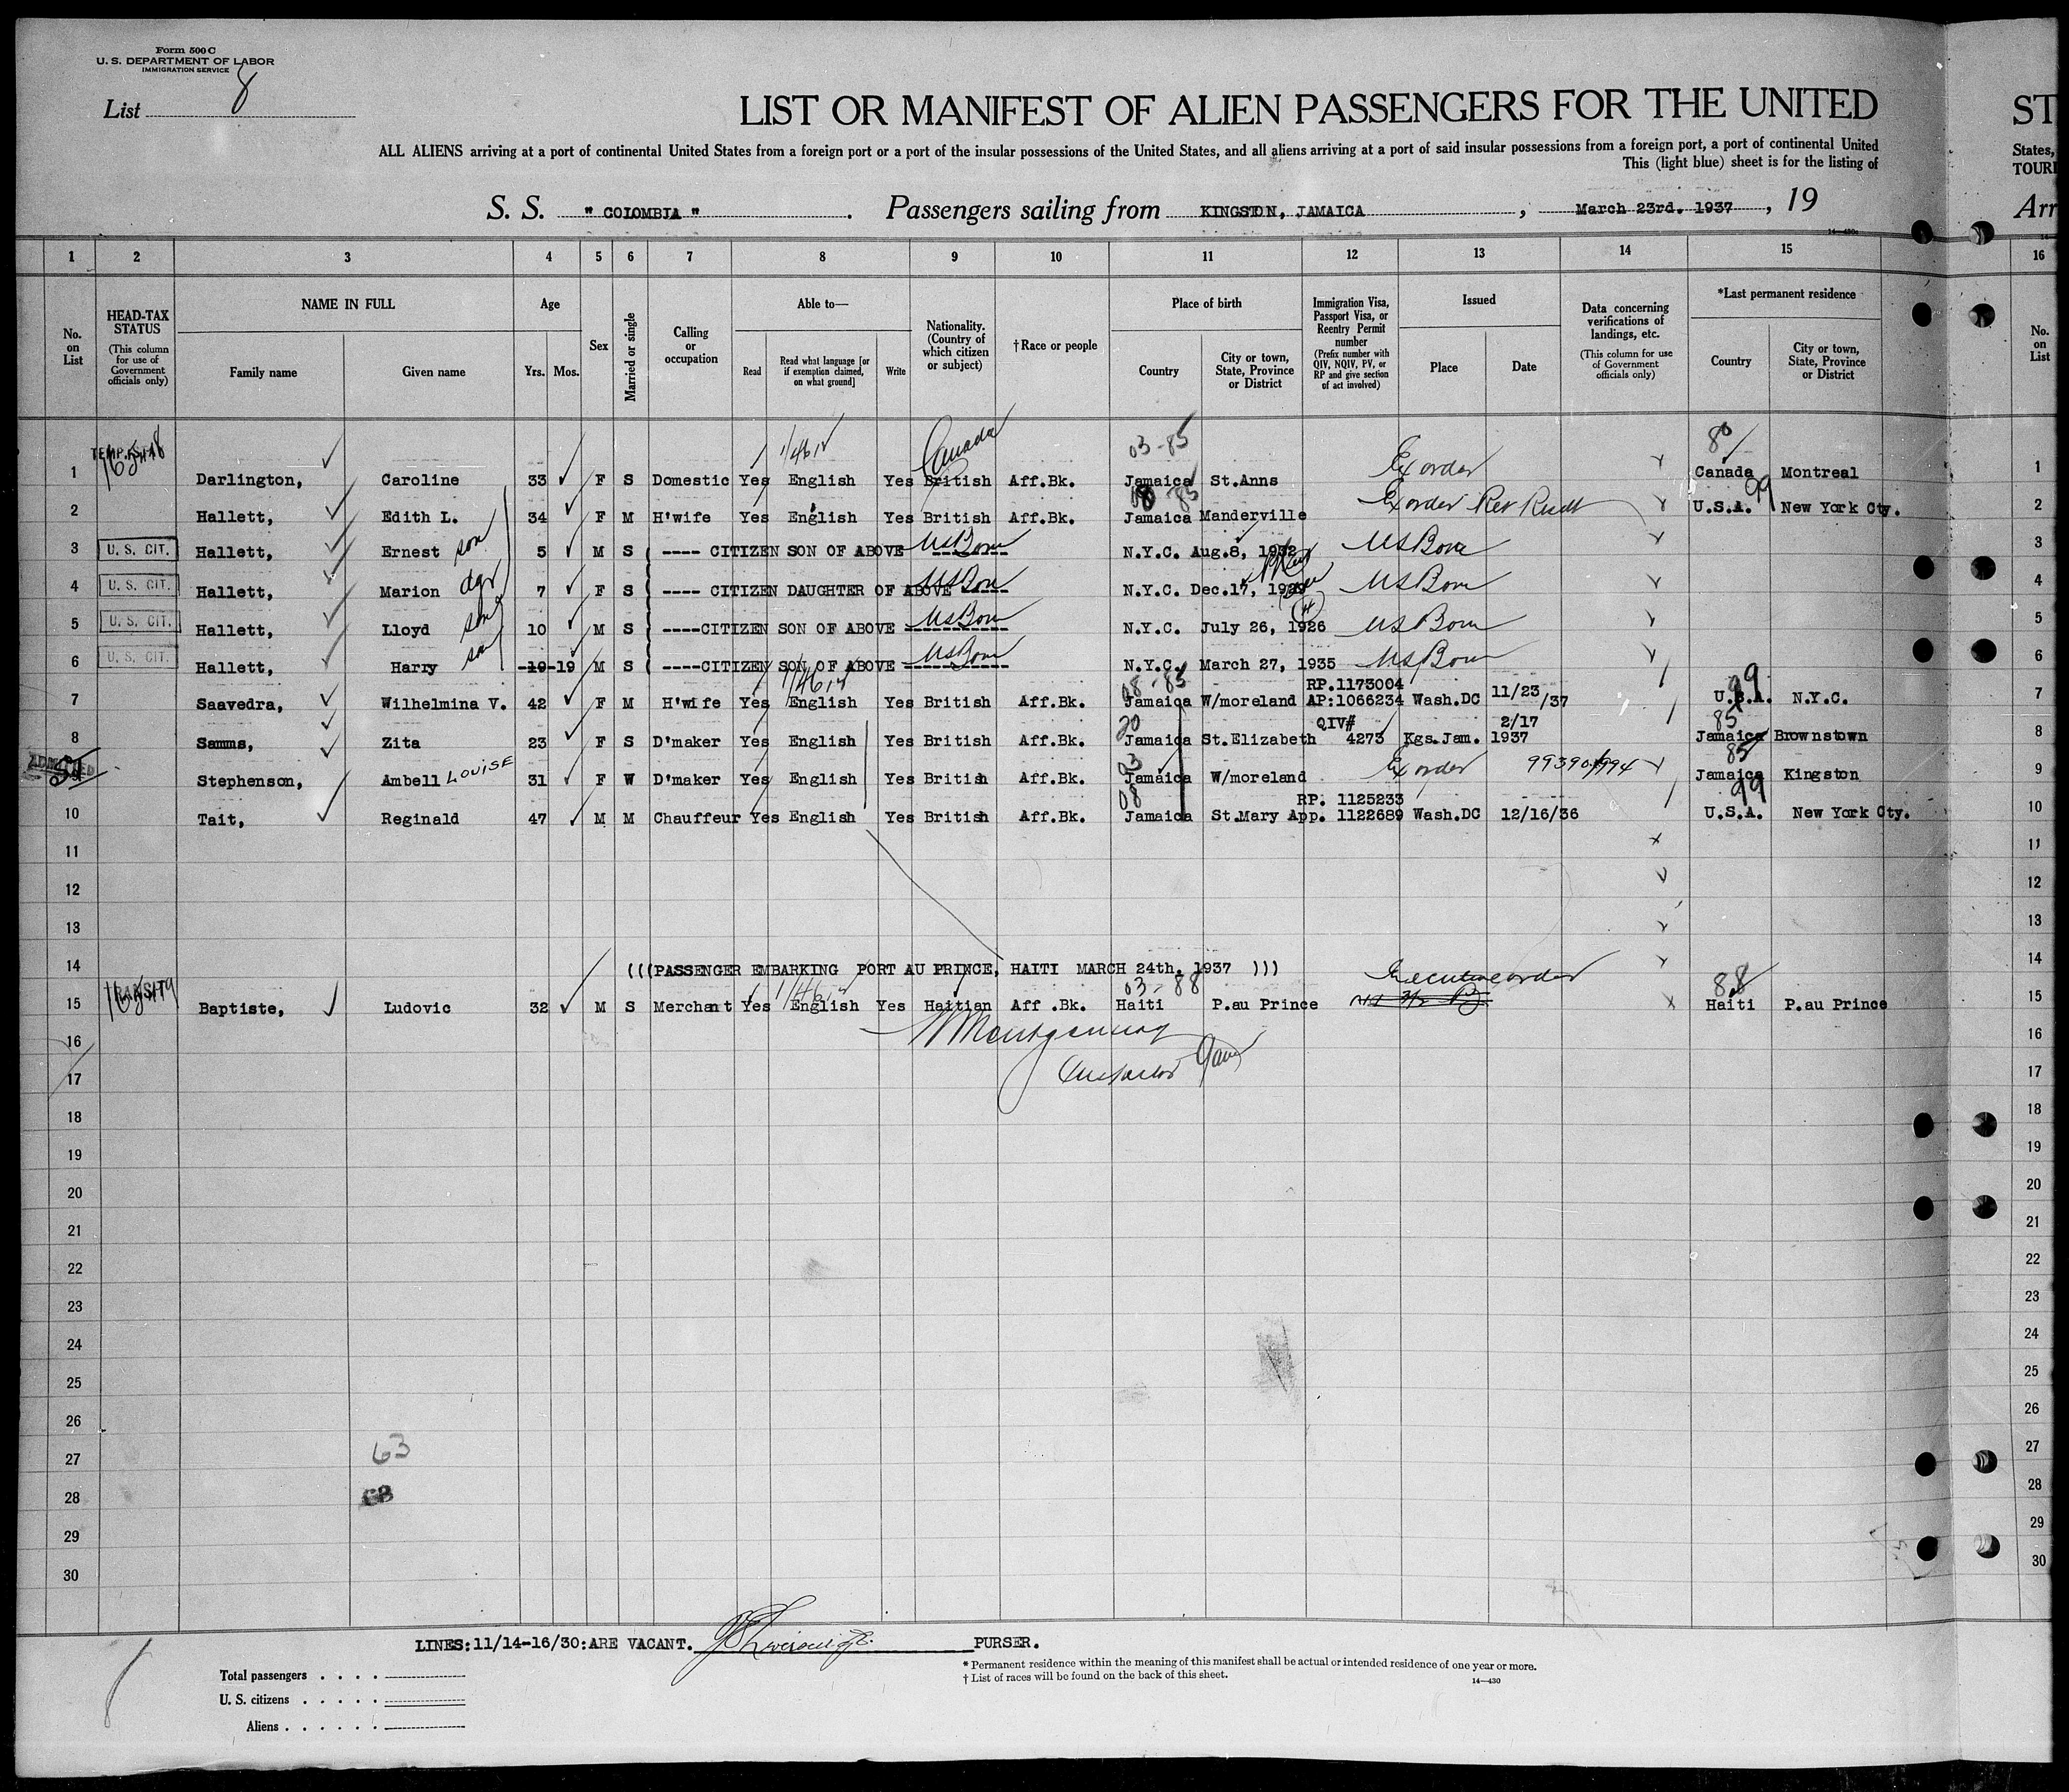 Form 500 C
U. S. DEPARTMENT OF LABOR
IMMIGRATION SERVICE
List 8
LIST OR MANIFEST OF ALIEN PASSENGERS FOR THE UNITED ST
ALL ALIENS arriving at a port of continental United States from a foreign port or a port of the insular possessions of the United States, and all aliens arriving at a port of said insular possessions from a foreign port, a port of continental United States,
This (light blue) sheet is for the listing of TOURI
S. S. " COLOMBIA " . Passengers sailing from KINGSTON, JAMAICA , March 23rd. 1937 , 19 Arr
14—430
1 2 3 4 5 6 7 8 9 10 11 12 13 14 15 16
No. on List
HEAD-TAX STATUS
(This column for use of Government officials only)
NAME IN FULL
Family name
Given name
Age
Yrs.
Mos.
Sex
Married or single
Calling or occupation
Able to—
Read
Read what language [or if exemption claimed, on what ground]
Write
Nationality. (Country of which citizen or subject)
† Race or people
Place of birth
Country
City or town, State, Province or District
Immigration Visa, Passport Visa, or Reentry Permit number
(Prefix number with QIV, NQIV, PV, or RP and give section of act involved)
Issued
Place
Date
Data concerning verifications of landings, etc.
(This column for use of Government officials only)
*Last permanent residence
Country
City or town, State, Province or District
No. on List
Canada 03-85 80
1 Darlington, Caroline 33 F S Domestic Yes English Yes British Aff.Bk. Jamaica St.Anns Ex order Canada Montreal 1
99
2 Hallett, Edith L. 34 F M H'wife Yes English Yes British Aff.Bk. Jamaica Manderville Ex order U.S.A. New York Cty. 2
3 U. S. CIT. Hallett, Ernest son 5 M S ( ---- CITIZEN SON OF ABOVE US Born N.Y.C. Aug.8, 1932 US Born 3
4 U. S. CIT. Hallett, Marion dgr 7 F S ( ---- CITIZEN DAUGHTER OF ABOVE US Born N.Y.C. Dec.17, 1929 US Born 4
5 U. S. CIT. Hallett, Lloyd son 10 M S ( ----CITIZEN SON OF ABOVE US Born N.Y.C. July 26, 1926 US Born 5
6 U. S. CIT. Hallett, Harry son -19-19 M S ( ----CITIZEN SON OF ABOVE US Born N.Y.C. March 27, 1935 US Born 6
08-85 RP.1173004 11/23 99
7 Saavedra, Wilhelmina V. 42 F M H'wife Yes English Yes British Aff.Bk. Jamaica W/moreland AP:1066234 Wash.DC /37 U.S.A. N.Y.C. 7
20 QIV# 2/17 85
8 Samms, Zita 23 F S D'maker Yes English Yes British Aff.Bk. Jamaica St.Elizabeth 4273 Kgs.Jam. 1937 Jamaica Brownstown 8
ADMITTED 03 85
9 Stephenson, Ambell LOUISE 31 F W D'maker Yes English Yes British Aff.Bk. Jamaica W/moreland Ex order Jamaica Kingston 9
08 RP. 1125233 99
10 Tait, Reginald 47 M M Chauffeur Yes English Yes British Aff.Bk. Jamaica St.Mary App. 1122689 Wash.DC 12/16/36 U.S.A. New York Cty. 10
11 11
12 12
13 13
14 (((PASSENGER EMBARKING PORT AU PRINCE, HAITI MARCH 24th, 1937 ))) 14
TRANSIT 03-88 Executive order 88
15 Baptiste, Ludovic 32 M S Merchant Yes English Yes Haitian Aff .Bk. Haiti P.au Prince Haiti P.au Prince 15
16 Montgomery 16
17 17
18 18
19 19
20 20
21 21
22 22
23 23
24 24
25 25
26 26
27 63 27
28 28
29 29
30 30
LINES:11/14-16/30:ARE VACANT. PURSER.
Total passengers
U. S. citizens
Aliens
* Permanent residence within the meaning of this manifest shall be actual or intended residence of one year or more.
† List of races will be found on the back of this sheet.
14—430